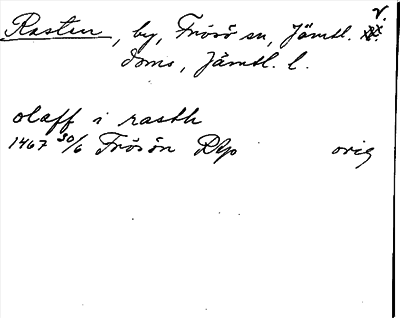 v.
Rasten, by, Frösö sn, Jämtl.
doms, Jämtl. l.
olaff i rasth
1467 30/6 Frösön RAp orig